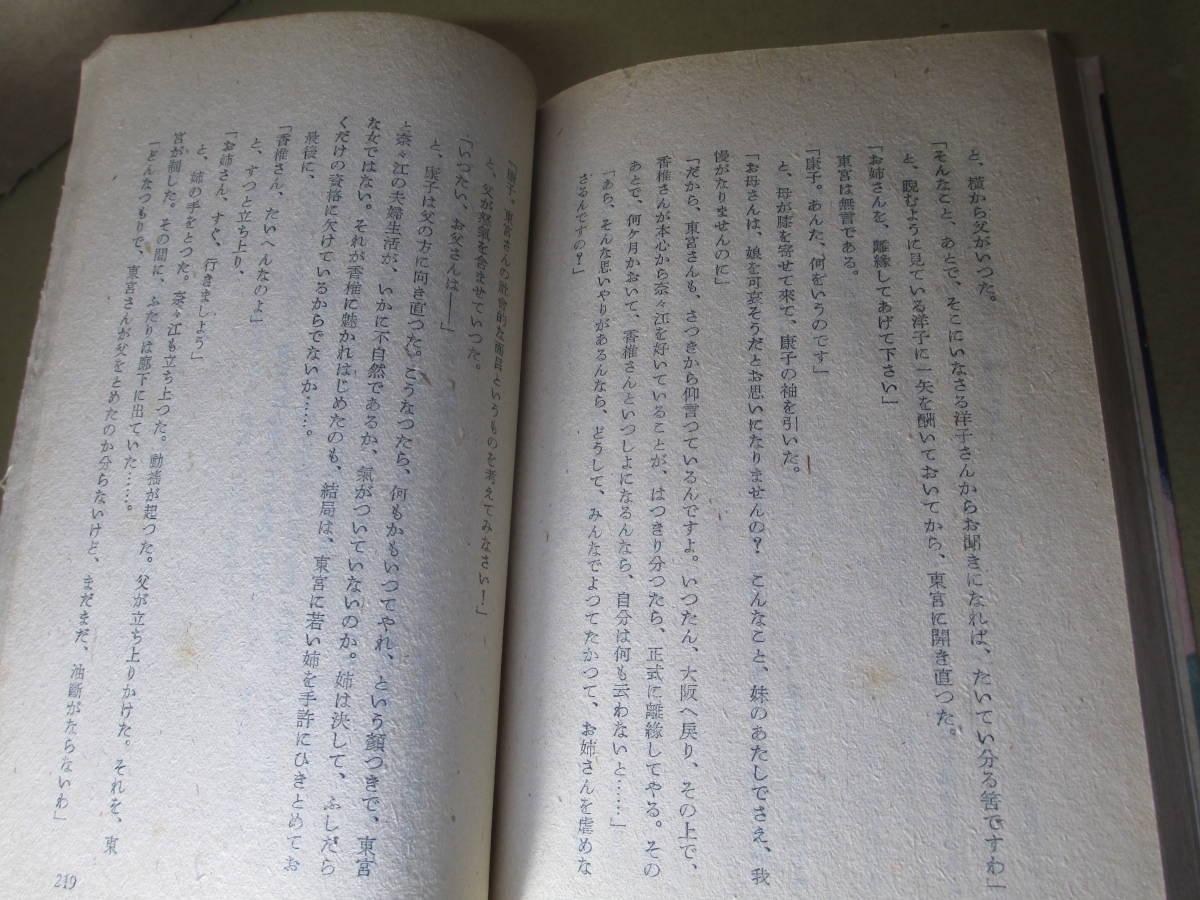 と、横から父がいつた。
「そんなこと、あとで、そこにいなさる洋子さんからお聞きになれば、たいてい分る筈ですわ」
と、睨むように見ている洋子に一矢を酬いておいてから、東宮に開き直つた。
「お姉さんを、離緣してあげて下さい」
東宮は無言である。
「康子。あんた、何をいうのです」
と、母が膝を寄せて来て、康子の袖を引いた。
「お母さんは、娘を可哀そうだとお思いになりませんの？　こんなこと、妹のあたしでさえ、我
慢がなりませんのに」
「だから、東宮さんも、さつきから仰言つているんですよ。いつたん、大阪へ戻り、その上で、
香椎さんが本心から奈々江を好いていることが、はつきり分つたら、正式に離緣してやる。その
あとで、何ケ月かおいて、香椎さんといつしよになるんなら、自分は何も云わないと……」
「あら、そんな思いやりがあるんなら、どうして、みんなでよつてたかつて、お姉さんを虐めな
さるんですの？」
「康子。東宮さんの社會的な面目というものを考えてみなさい！」
と、父が怒氣を含ませていつた。
「いつたい、お父さんは――」
と、康子は父の方に向き直つた。こうなつたら、何もかもいつてやれ、という顔つきで、東宮
と奈々江の夫婦生活が、いかに不自然であるか、氣がついていないのか。姉は決して、ふしだら
な女ではない。それが香椎に魅かれはじめたのも、結局は、東宮に若い姉を手許にひきとめてお
くだけの資格に欠けているからでないか……。
最後に、
「香椎さん、たいへんなのよ」
と、すつと立ち上り、
「お姉さん、すぐ、行きましよう」
と、姉の手をとつた。奈々江も立ち上つた。動搖が起つた。父が立ち上りかけた。それを、東
宮が制した。その間に、ふたりは廊下に出ていた……。
「どんなつもりで、東宮さんが父をとめたのか分らないけど、まだまだ、油斷がならないわ」
219